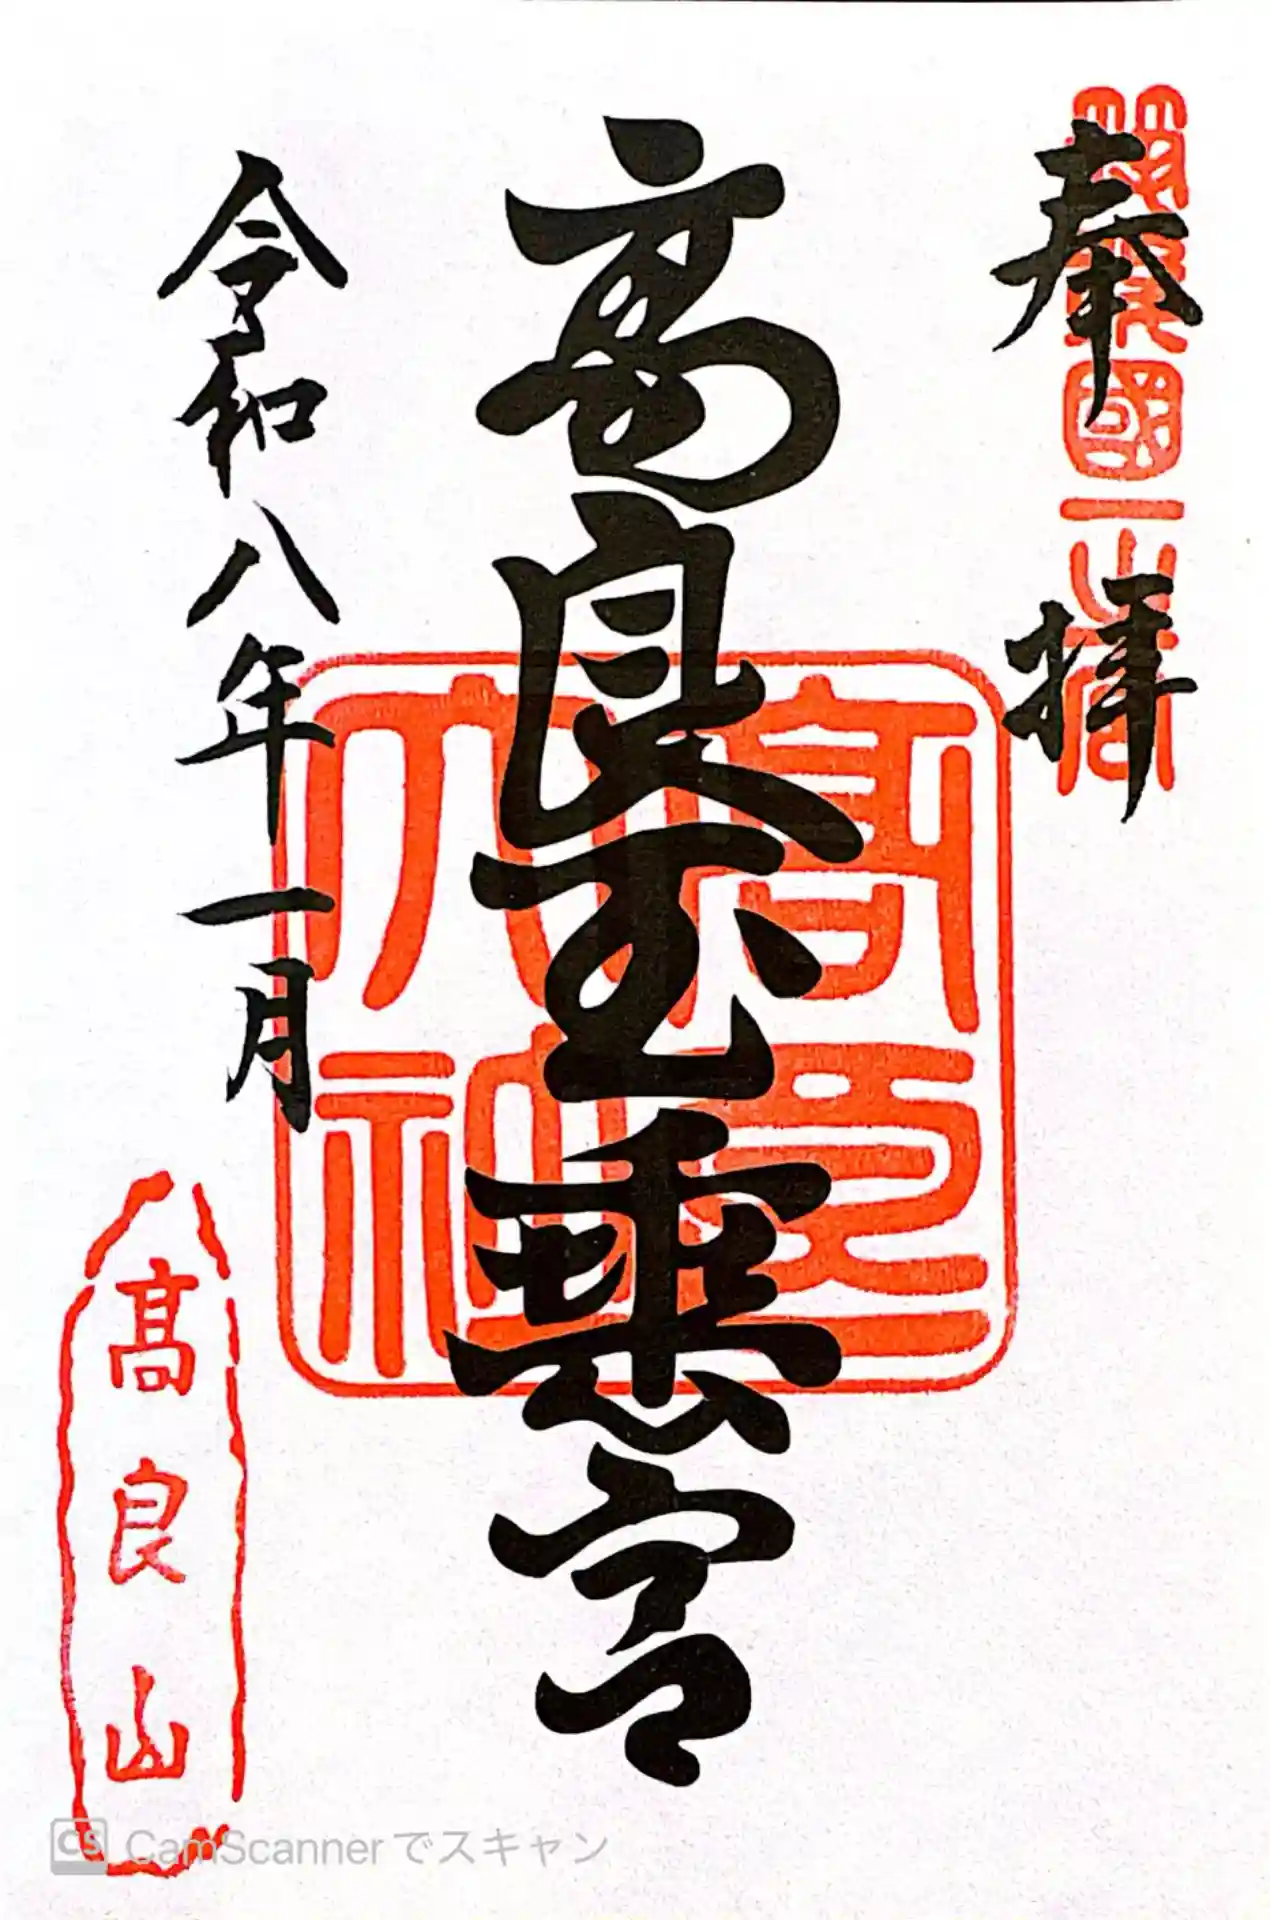 奉拝
筑後國一之宮
高良玉垂宮
高良大神
令和八年一月
高良山
CS CamScannerでスキャン